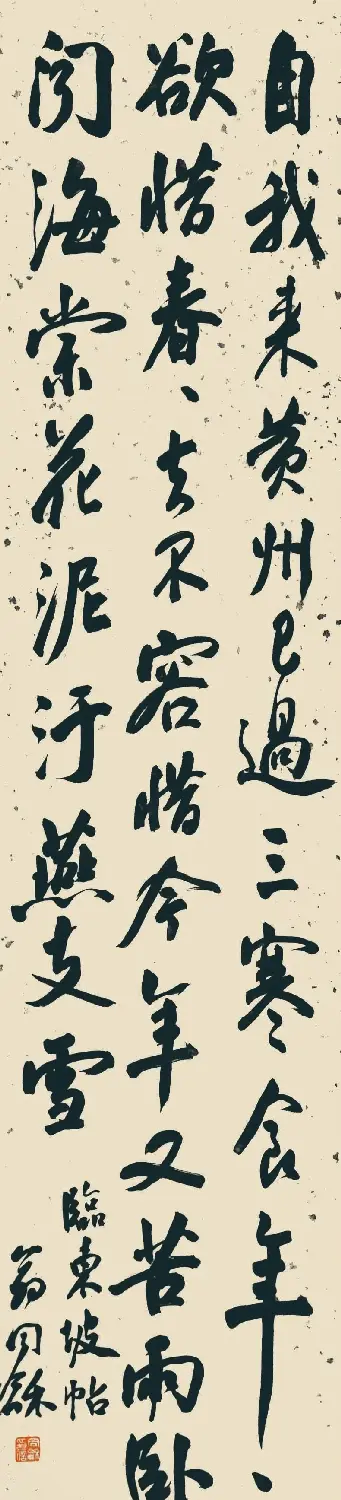 自我来黄州已過三寒食年、
欲惜春、去不容惜今年又苦雨卧
闻海棠花泥汙燕支雪
臨東坡帖
翁同龢